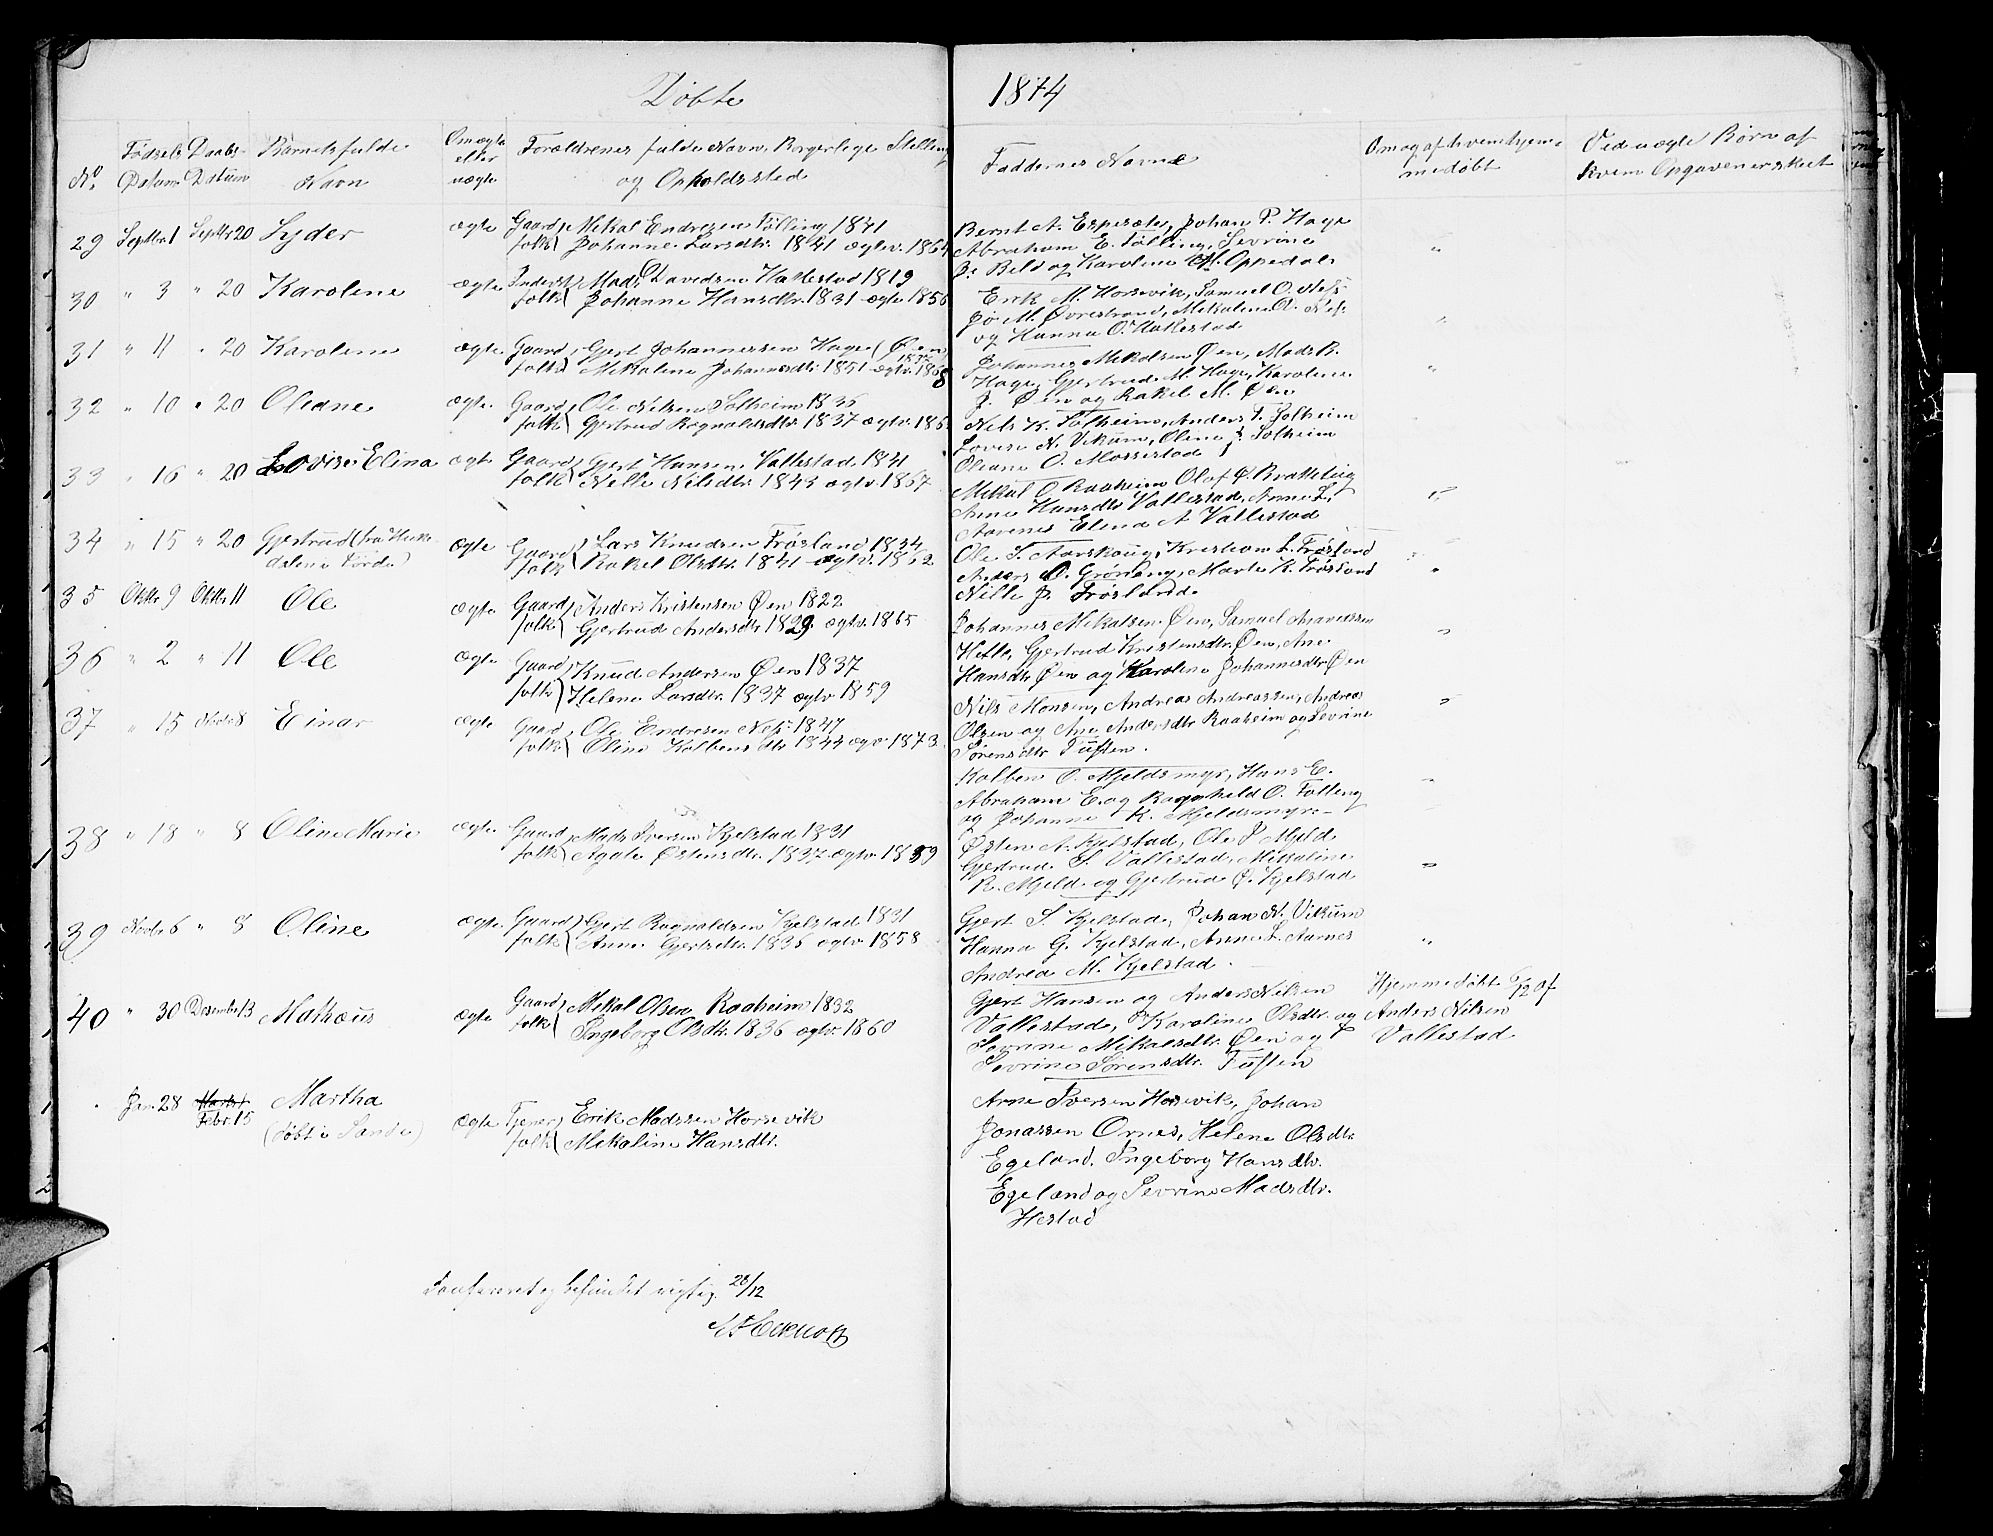 Døbte 1874
No. Fødsels Datum Daabs Datum Barnets fulde Navn Om ægte eller uægte Forældrenes fulde Navn, Borgerlige Stilling og Opholdssted Faddernes Navne Om og af hvem hjemmedøbt Ved uægte Børn af hvem Opgaven er skeet
29 Septbr 1 Septbr 20 Syder ægte Gaard folk Mikal Endresen Tølling 1841
Johanne Larsdtr. 1841 ægtev. 1864
Bernt A. Espesæte, Johan P. Hage
Abraham E. Tølling, Sevrine
J. Beld og Karoline M. Oppedal
30 " 3 " 20 Karoline ægte Inderst folk Mads Davidsen Hallestad 1819
Johanne Hansdtr. 1831 ægtv 1856
Erik M. Horsevik, Samuel O. Ness
Jo M. Øvrestrand, Mikaline A. Nes.
og Hanna O. Hallestad
31 " 11 " 20 Karoline ægte Gaard folk Gjert Johannessen Hage (Øen)
Mikaline Johannesdtr. 1851 ægtv. 1868
Johannes Mikalsen Øen, Mads R.
Hage, Gjertrud M. Hage, Karoline
J. Øen og Rakel M. Øen
32 " 10 " 20 Oleane ægte Gaard folk Ole Nilsen Solheim 1835
Gjertrud Ragnaldsdtr. 1837 ægtv. 186
Nels K. Solheim, Anders T. Solheim
Lovise N. Vikum, Oline J. Solheim
Oleane O. Mossestad
33 " 16 " 20 Lovise Elina ægte Gaard folk Gjert Hansen Vallestad 1841
Nille Nilsdtr. 1843 ægtv. 1867
Mikal O Raaheim Olaf Ø. Bratteteig
Anne Hansdtr Vallestad, Anne L.
Aarenes Elena A Vallestad
34 " 15 " 20 Gjertrud (fra
dalen i Førde) ægte Gaard folk Lars Knudsen Frøsland 1834
Rakel Olsdtr. 1841 ægtv. 1862
Ole S. Aarskoug, Kristian L. Frøsland
Anders O. Grøneng, Marte K. Frøsland
Nille J. Frøsland.
35 Oktbr 9 Oktbr 11 Ole ægte Gaard folk Anders Kristensen Øen 1822
Gjertrud Andersdtr 1829 ægtv. 1865
Johannes Mikalsen Øen, Samuel
Helle, Gjertrud Kristensdtr. Øen, Ane
Hansdtr Øen og Karoline Johannesdtr Øen
36 " 2 " 11 Ole ægte Gaard folk Knud Andersen Øen 1837
Helene Larsdtr. 1837 ægtv 1859
Nils Monsen, Andreas Andreassen, Andreas
Olsen og Ane Andersdtr Raaheim og Sevrine
Sørensdtr Tuften.
37 " 15 Novbr 8 Einar ægte Gaard folk Ole Endresen Nes 1847
Oline Kolbensdtr 1844 ægv 1873.
Kolben O. Mjeldsmyr, Hans E.
Abraham E. og Ragnhild O. Tølling
og Johanne K. Mjeldsmyr.
38 " 18 " 8 Oline Marie ægte Gaard folk Mads Iversen Kjelstad 1831
Agate Østensdtr. 1837 ægtv. 1859
Østen A. Kjelstad, Ole P Mjeld
Gjertrud S. Vallestad, Mikaline
R. Mjeld og Gjertrud Ø. Kjelstad
39 Novbr 6 " 8 Oline ægte Gaard folk Gjert Ragnaldsen Kjelstad 1831
Anne Gjertsdtr. 1836 ægtv. 1858
Gjert S. Kjelstad, Johan N. Vikum
Hanna G. Kjelstad, Anne L. Aarnes
Andrea M. Kjelstad.
40 " 30 December 13 Mathæus ægte Gaard folk Mikal Olsen Raaheim 1832
Ingeborg Olsdtr. 1836 ægtv. 1860
Gjert Hansen og Anders Nilsen
Vallestad, Karoline Olsdtr. og
Sevrine Mikalsdtr. Øen og
Sevrine Sørensdtr. Tuften
Hjemmedøbt 6/12 af
Anders Nilsen
Vallestad
Jan. 28 Febr. 15 Martha
(døbt i Sande) ægte Tjener folk Erik Madssen Horsevik
Mikaline Hansdtr.
Arne Iversen Horsevik, Johan
Jonassen Ornes, Helene Olsdtr.
Egeland, Ingeborg Hansdtr.
Egeland og Sevrine Madsdtr.
Hestad
Konfereret og befundet rigtig. 28/12